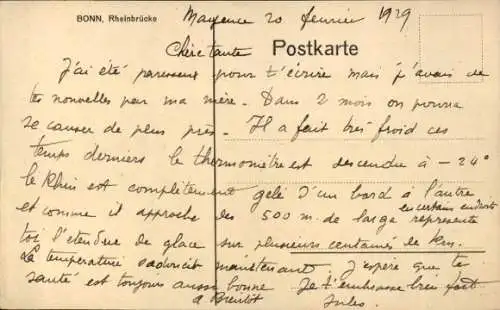 BONN, Rheinbrücke
Mayence 20 février 1929
Postkarte
Chère tante
J'ai été paresseux pour t'écrire mais j'avais de
tes nouvelles par ma mère. Dans 2 mois on pourra
se causer de plus près. Il a fait très froid ces
temps derniers le thermomètre est descendu à - 24°
le Rhin est complètement gelé d'un bord à l'autre
et comme il approche les 500 m. de large en certains endroits représente
toi l'étendue de glace sur plusieurs centaines de Km.
La température s'adoucit maintenant J'espère que ta
santé est toujours aussi bonne Je t'embrasse bien fort
a Bientôt Jules.